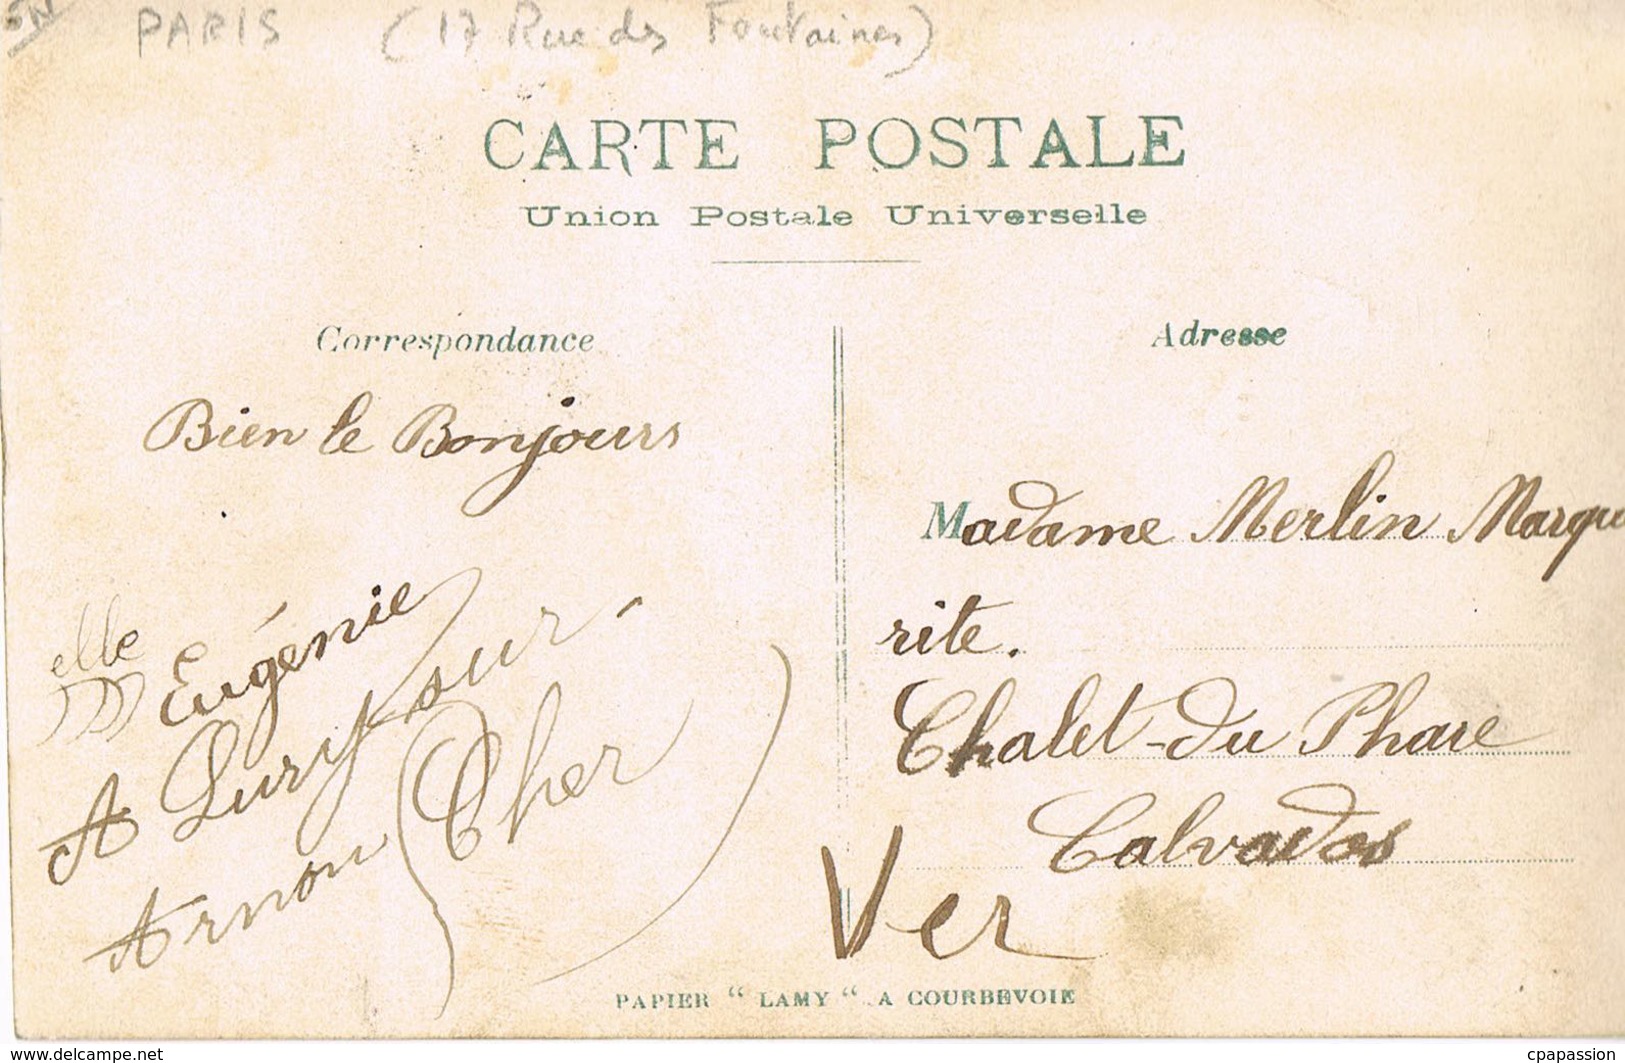 PARIS (17 Rue des Fontaines)
CARTE POSTALE
Union Postale Universelle
Correspondance
Bien le Bonjours
elle
Eugénie
A Lury-sur-
Arnon (Cher)
Adresse
Madame Merlin Margue
rite.
Chalet-du Phare
Calvados
Ver
PAPIER “ LAMY “ A COURBEVOIE
www.delcampe.net
cpapassion